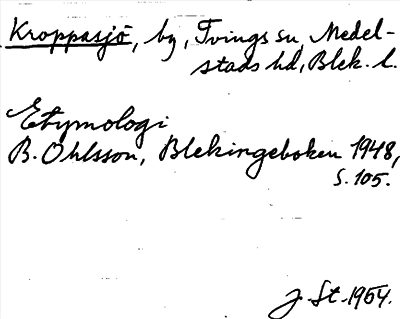 Kroppasjö, by, Tvings sn, Medel-
stads hd, Blek. l.
Etymologi
B. Ohlsson, Blekingeboken 1948,
s. 105.
J. St. 1954.